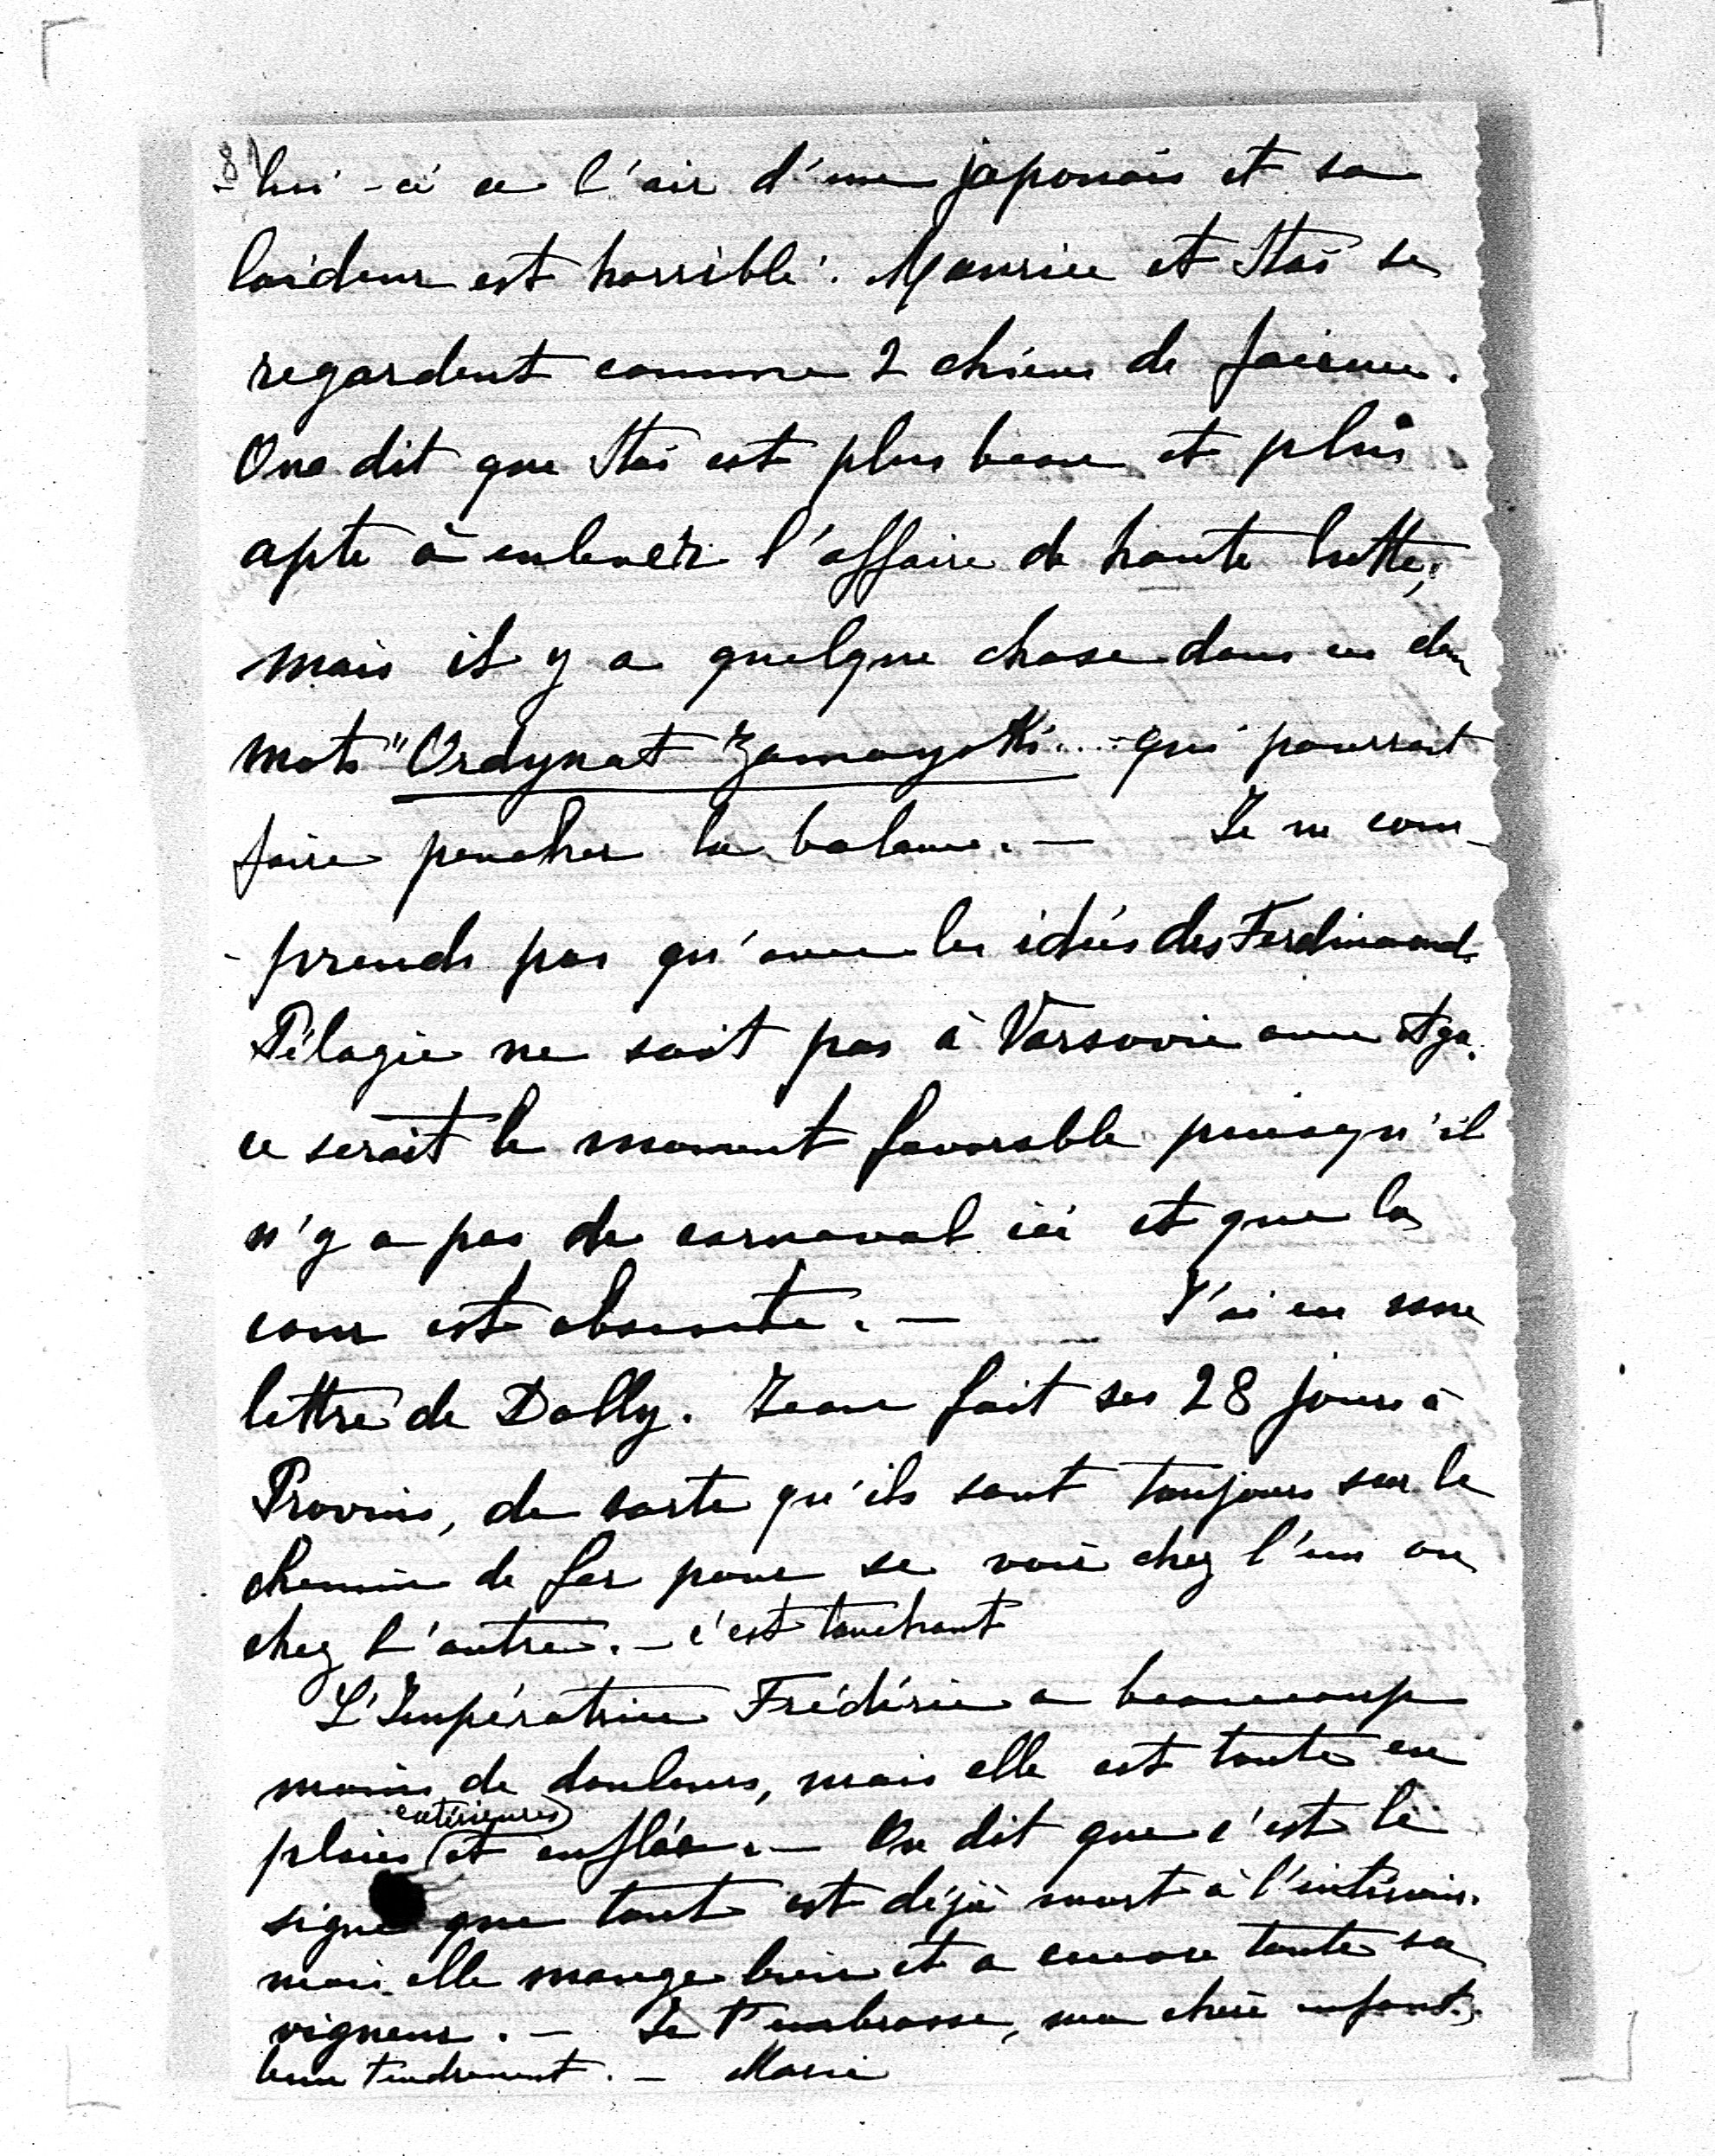 8)
- lui-ci a l'air d'un japonais et sa
laideur est horrible. Maurice et Stas se
regardent comme 2 chiens de faience.
On dit que Stas est plus beau et plus
apte à enlever l'affaire de haute lutte,
mais il y a quelque chose dans ces deux
mots "Ordynat Zamoyski.... qui pourrait
faire pencher la balance. — Je ne com-
- prends pas qu'avec les idées des Ferdinand
Pélagie ne soit pas à Varsovie avec Aga.
ce serait le moment favorable puisqu'il
n'y a pas de carnaval ici et que la
cour est absente. — J'ai eu une
lettre de Dolly. Jean fait ses 28 jours à
Provins, de sorte qu'ils sont toujours sur le
chemin de fer pour se voir chez l'un ou
chez l'autre. — c'est touchant
L'Impératrice Frédéric a beaucoup
moins de douleurs, mais elle est toute en
extérieures
plaies et enflée. — On dit que c'est le
signe que tout est déjà mort à l'intérieur.
mais elle mange bien et a encore toute sa
vigueur. — Je t'embrasse, ma chère enfant,
bien tendrement. — Marie